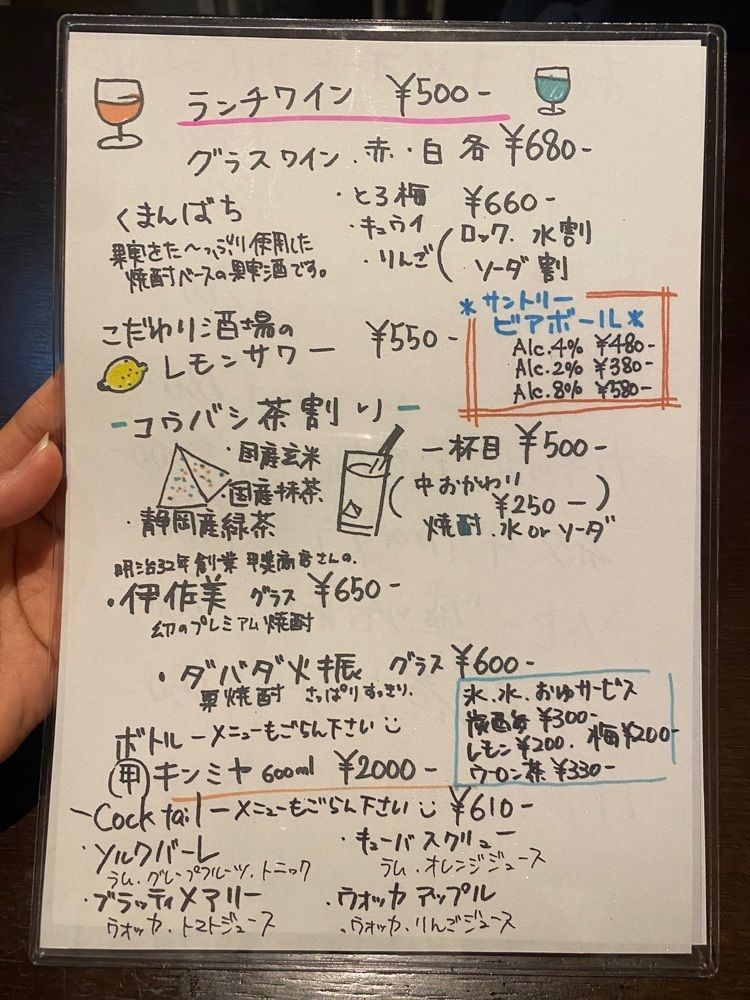 ランチワイン ¥500-
グラスワイン.赤.白 各 ¥680-
くまんばち
果実をた〜っぷり使用した
焼酎ベースの果実酒です。
・とろ梅 ¥660-
・キュウイ
・りんご
(ロック.水割
ソーダ割
こだわり酒場の
レモンサワー ¥550-
*サントリー
ビアボール*
Alc.4% ¥480-
Alc.2% ¥380-
Alc.8% ¥580-
-コウバシ茶割り-
・国産玄米
国産抹茶
・静岡産緑茶
一杯目 ¥500-
(中おかわり
¥250-)
焼酎.水orソーダ
明治32年創業 甲斐商店さんの.
・伊佐美 グラス ¥650-
幻のプレミアム焼酎
・ダバダ火振 グラス ¥600-
栗焼酎 さっぱりすっきり.
氷.水.おゆサービス
¥300-
レモン¥200. 梅¥200-
ウーロン茶 ¥330-
ボトルーメニューもごらん下さい
甲 キンミヤ 600ml ¥2000-
-Cocktailーメニューもごらん下さい ¥610-
・ソルクバーレ
ラム.グレープフルーツ.トニック
・キューバスクリュー
ラム.オレンジジュース
・ブラッティメアリー
ウオッカ.トマトジュース
・ウオッカアップル
・ウオッカ.りんごジュース